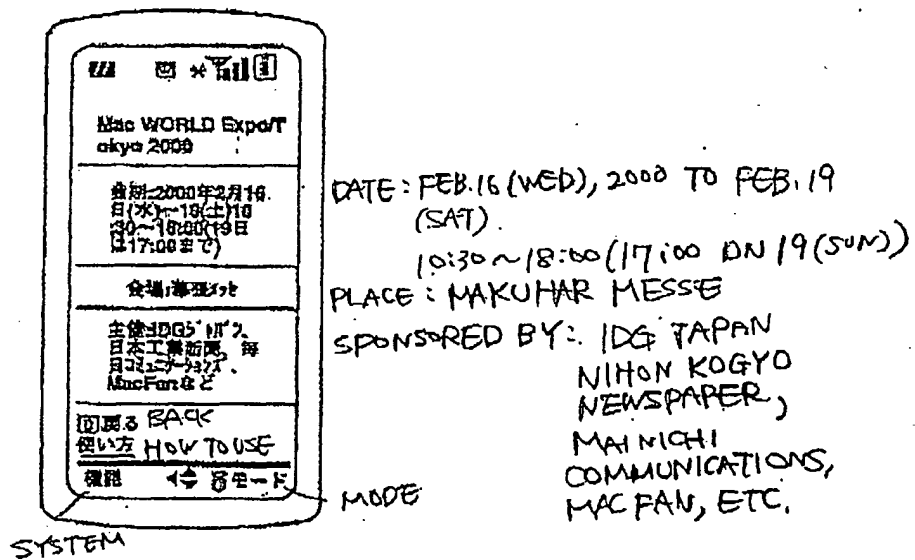 Mac WORLD Expo/T
okyo 2000
会期:2000年2月16
日(水)~19(土)10
:30~18:00(19日
は17:00まで)
会場:幕張メッセ
主催:IDGジャパン、
日本工業新聞、毎
日コミュニケーションズ、
MacFanなど
回戻る BACK
使い方 HOW TO USE
機能
モード
SYSTEM
MODE
DATE: FEB.16 (WED), 2000 TO FEB. 19
(SAT).
10:30~18:00 (17:00 ON 19 (SUN))
PLACE: MAKUHAR MESSE
SPONSORED BY: IDG JAPAN
NIHON KOGYO
NEWSPAPER,
MAINICHI
COMMUNICATIONS,
MAC FAN, ETC.